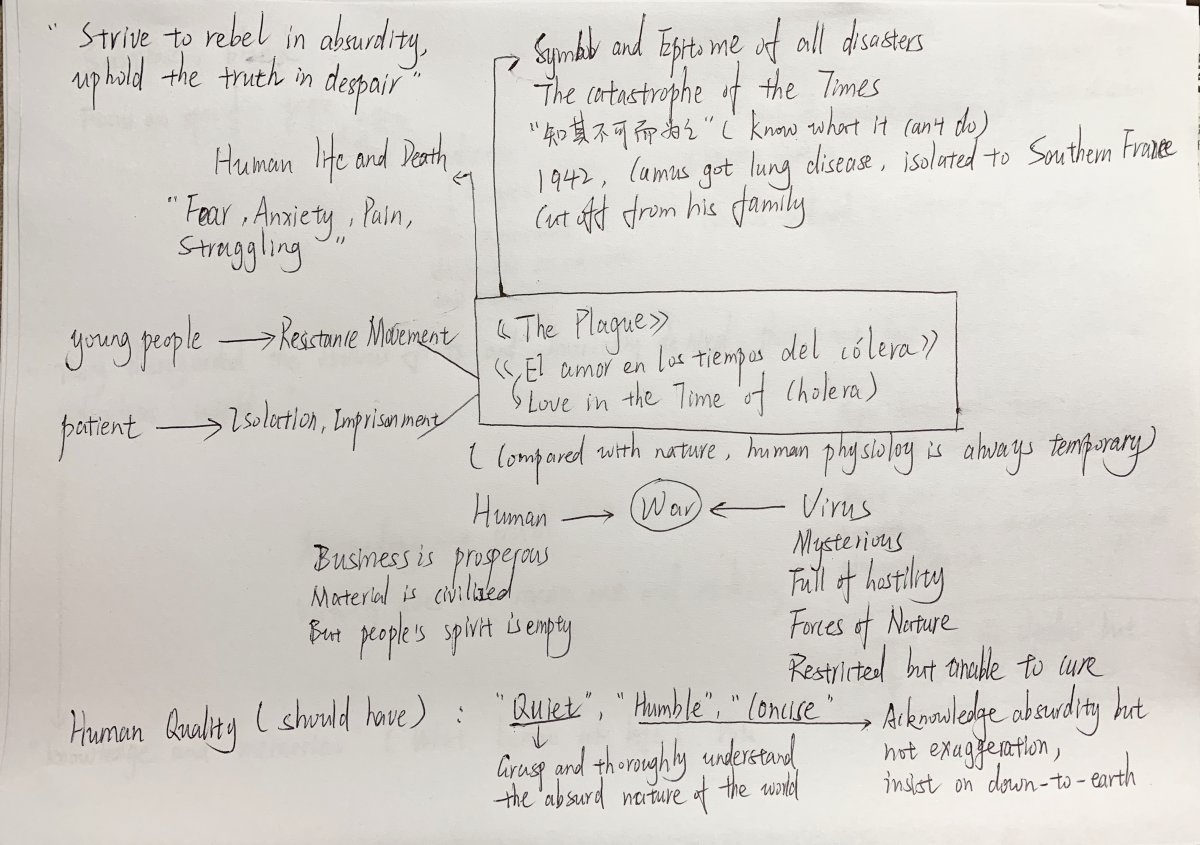 "Strive to rebel in absurdity,
uphold the truth in despair"
Symbol and Epitome of all disasters
The catastrophe of the Times
"知其不可而为之" ( know what it can't do)
1942, Camus got lung disease, isolated to Southern France
Cut off from his family
Human life and Death
"Fear, Anxiety, Pain,
Straggling"
young people → Resistance Movement
patient → Isolation, Imprisonment
《The Plague》
《El amor en los tiempos del cólera》
Love in the Time of Cholera)
( Compared with nature, human physiology is always temporary)
Human → War ← Virus
Business is prosperous
Material is civilized
But people's spirit is empty
Mysterious
Full of hostility
Forces of Nature
Restricted but unable to cure
Human Quality (should have) : "Quiet", "Humble", "Concise" →
Grasp and thoroughly understand
the absurd nature of the world
Acknowledge absurdity but
not exaggeration,
insist on down-to-earth